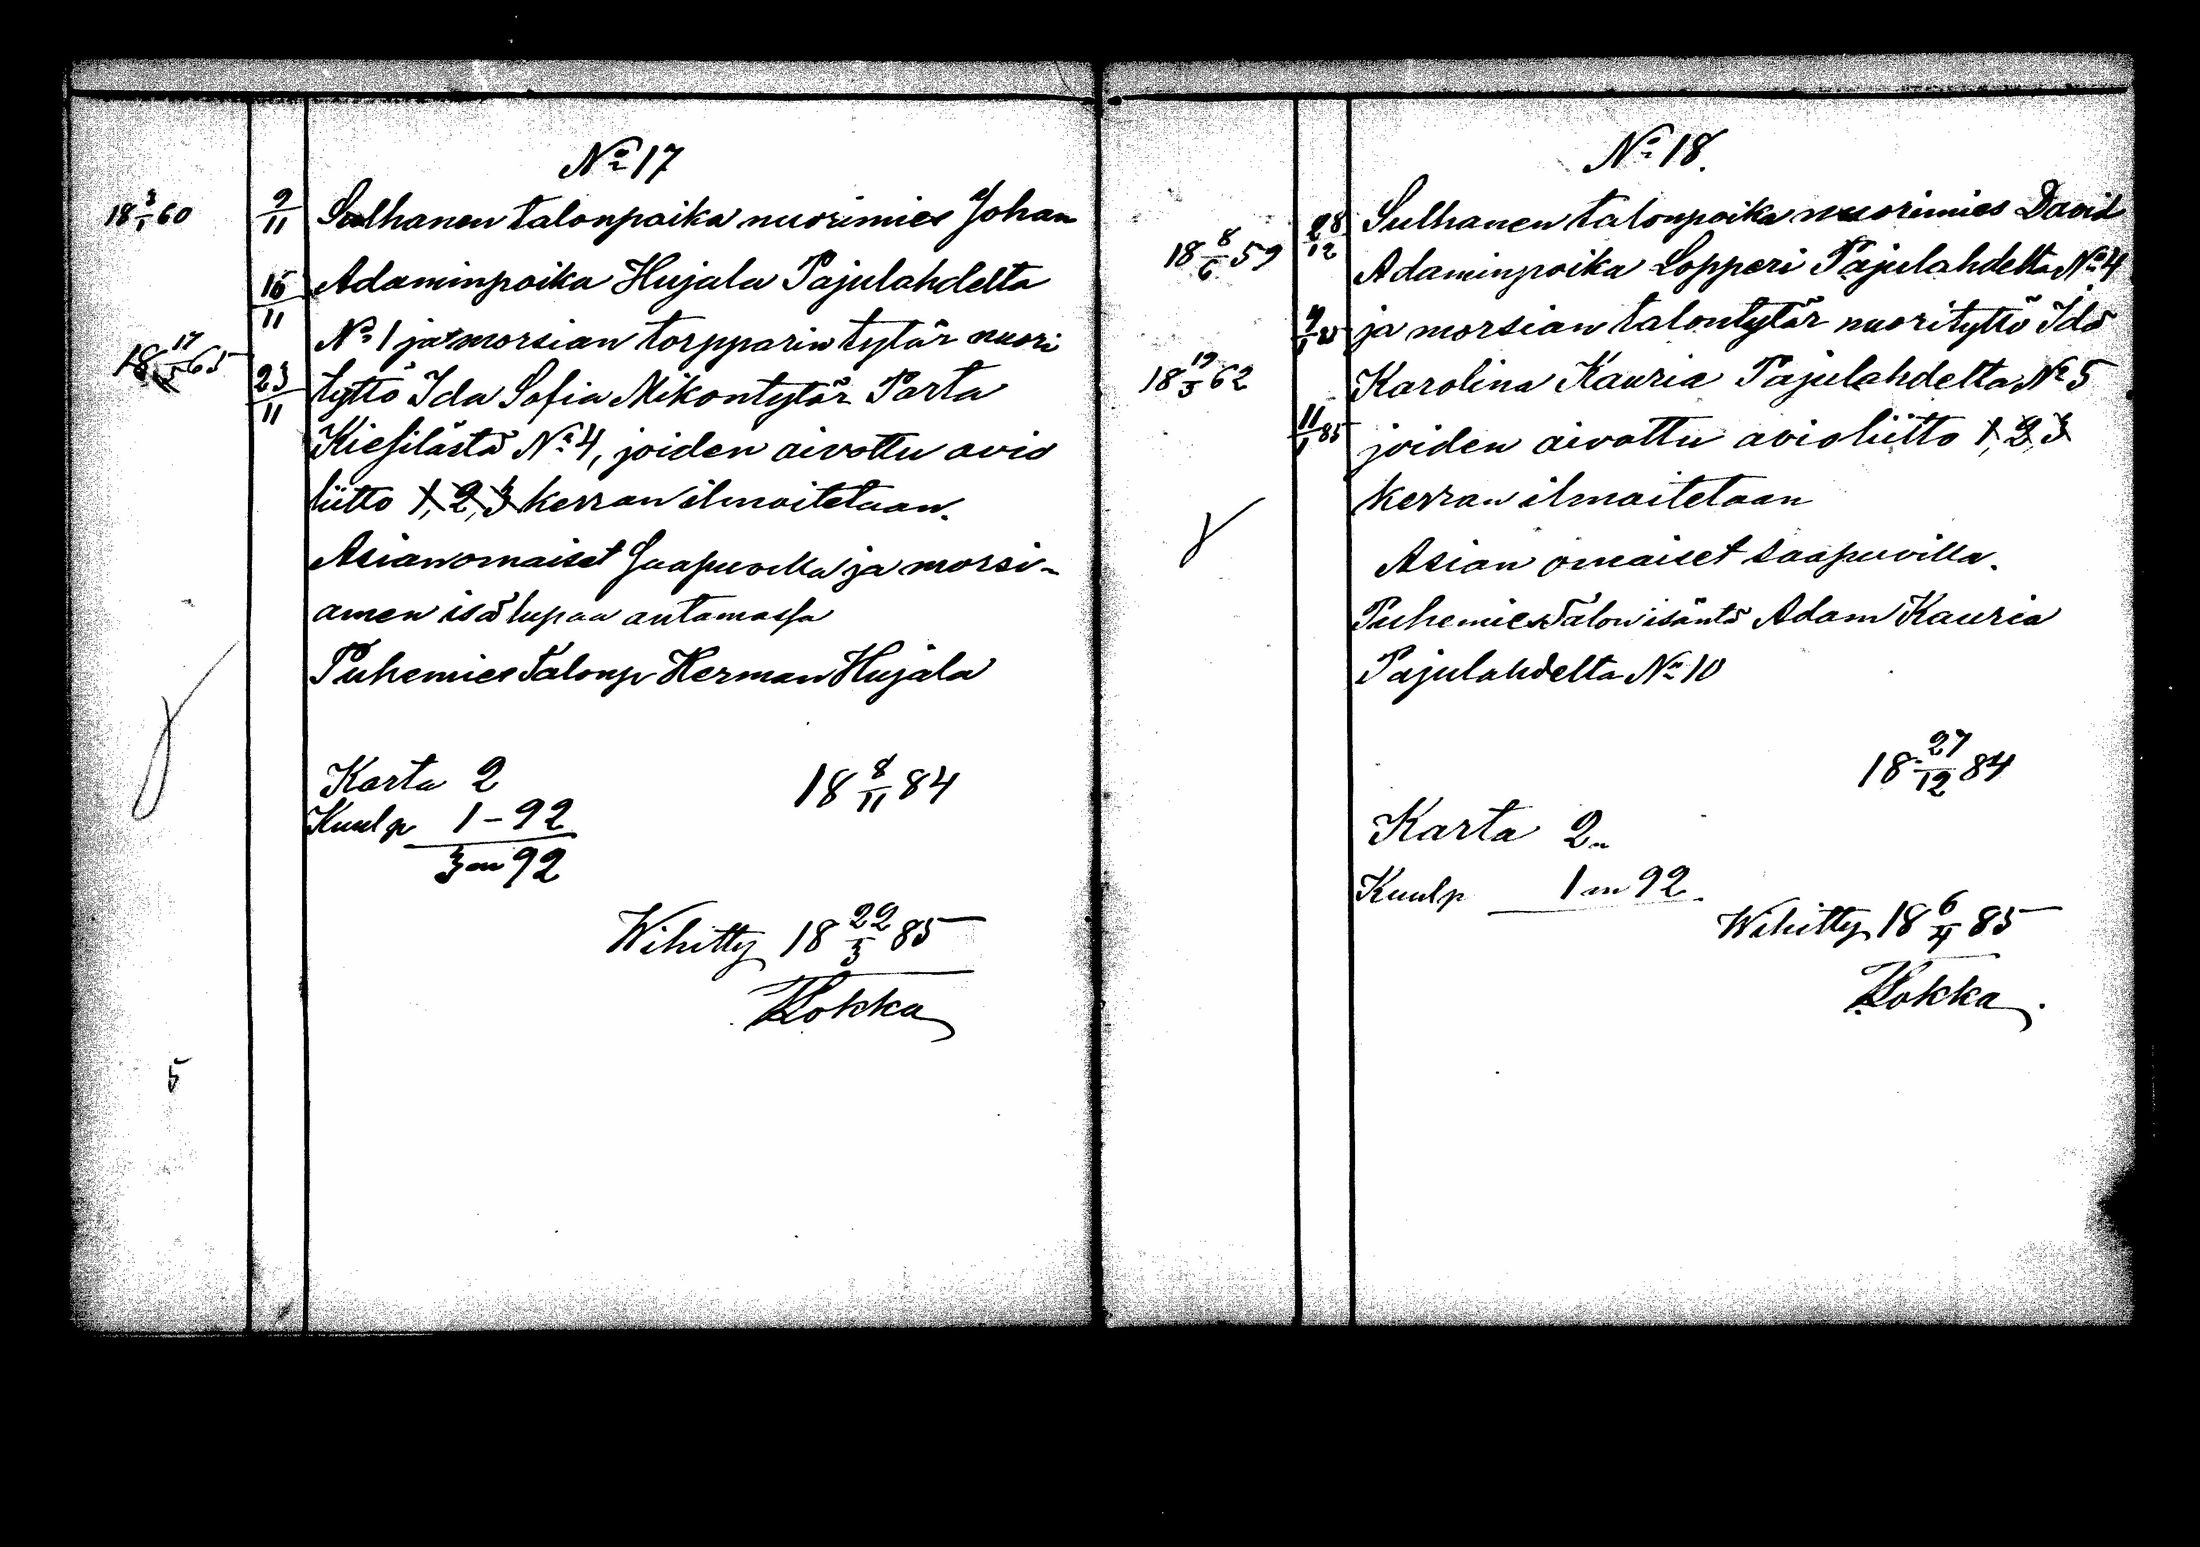 No 17
18 3/1 60
9/11
Sulhanen talonpoika nuorimies Johan
16/11
Adaminpoika Hujala Pajulahdelta
No 1 ja morsian torpparin tytär nuori
18 17/5 65
23/11
tyttö Ida Sofia Mikontytär Parta
Kiesilästä No 4, joiden aivottu avio
liitto 1, 2, 3 kerran ilmoitetaan.
Asianomaiset saapuvilla ja morsi-
amen isä lupaa antamassa
Puhemies Talonp Herman Hujala
Karta 2
18 8/11 84
Kuulp 1-92
3 m 92
Wihitty 18 22/3 85
KLokka
5
No 18.
28/12
Sulhanen talonpoika nuorimies David
18 8/6 59
Adaminpoika Lopperi Pajulahdelta No 4
ja morsian talontytär nuorityttö Ida
18 19/3 62
Karolina Kauria Pajulahdelta No 5
11/1 85
joiden aivottu avioliitto 1, 2, 3
kerran ilmoitetaan
Asian omaiset saapuvilla.
Puhemies Talon isäntä Adam Kauria
Pajulahdelta No 10
18 27/12 84
Karta 2"
Kuulp 1 m 92
Wihitty 18 6/4 85
KLokka.